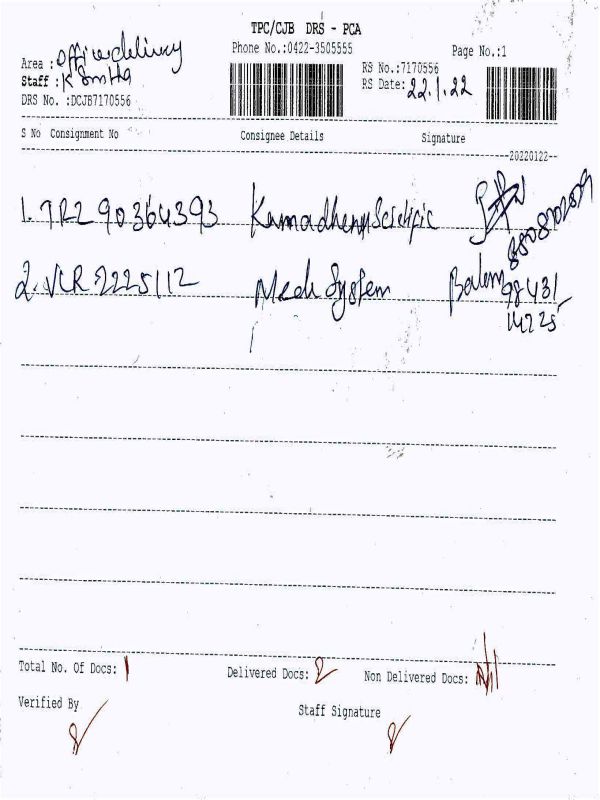 TPC/CJB DRS - PCA
Phone No.:0422-3505555
Page No.:1
Area : office delivery
Staff : K Smitha
DRS No. :DCJB7170556
RS No.:7170556
RS Date: 22.1.22
S No Consignment No Consignee Details Signature
20220122
1. TRZ 90364393 Kamadhenu Scientific
2. VCR 2225112 Medi System 98431
14225
Total No. Of Docs: 1 Delivered Docs: 2 Non Delivered Docs: Nil
Verified By
Staff Signature